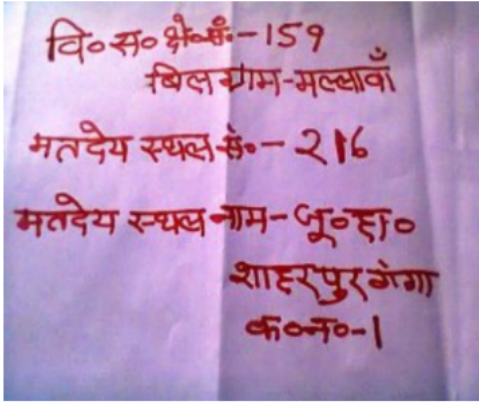 वि०स० क्षे०सं०-159
बिलग्राम-मल्लावाँ
मतदेय स्थल सं०-216
मतदेय स्थल नाम-जू०हा०
शाहरपुर गंगा
क०न०-1